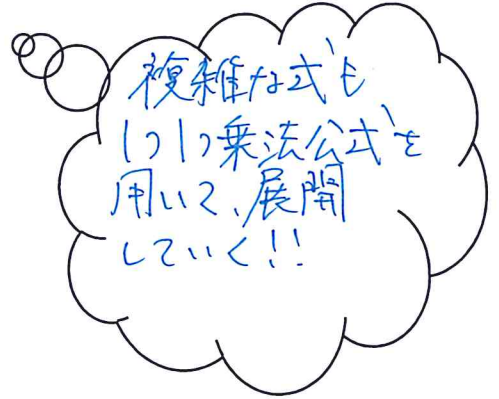 複雑な式も
1つ1つ乗法公式を
用いて、展開
していく!!